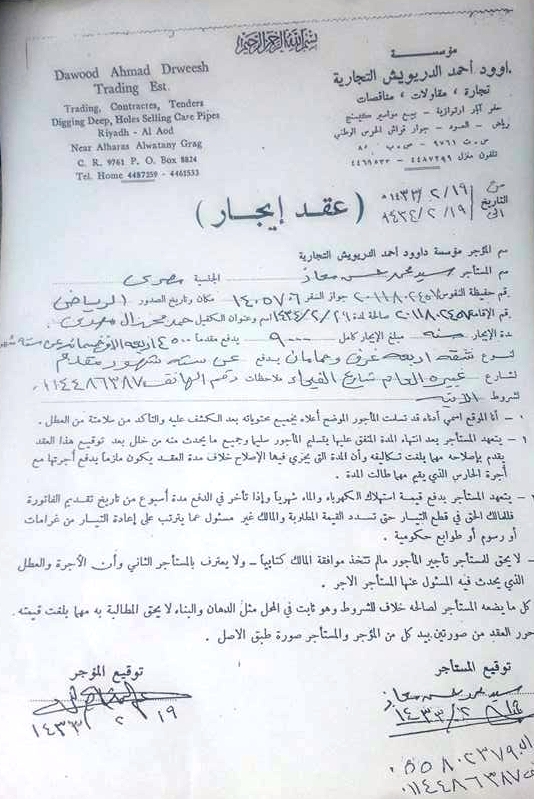 بسم الله الرحمن الرحيم
Dawood Ahmad Drweesh
Trading Est.
Trading, Contractes, Tenders
Digging Deep, Holes Selling Care Pipes
Riyadh - Al Aod
Near Alharas Alwatany Grag
C. R. 9761 P. O. Box 8824
Tel. Home 4487259 - 4461533
مؤسسة
داوود أحمد الدريويش التجارية
تجارة ، مقاولات ، مناقصات
حفر آبار ارتوازية - بيع مواسير
رياض - العود - جوار قراش الحرس الوطني
س . ت ٩٧٦١ - ص . ب
تلفون منزل ٤٤٨٧٢٥٩ - ٤٤٦١٥٣٣
( عقد إيجار )
من ١٤٣٣/٢/١٩
التاريخ
الى ١٤٣٤/٢/١٩
سم المؤجر مؤسسة داوود أحمد الدريويش التجارية
سم المستأجر سيد محمد حسن معاذ الجنسية مصرى
قم حفيظة النفوس جواز السفر مكان وتاريخ الصدور الرياض
قم الإقامة صالحة لمدة اسم وعنوان الكفيل
مدة الإيجار سنه مبلغ الإيجار كامل ٩٠٠٠ يدفع مقدما ٤٥٠٠
شقه اربعه غرف وحمامان يدفع عن سته شهور مقدم
لشارع شارع ملاحظات رقم الهاتف ٠١١٤٤٨٦٣٨٧
لشروط
١ - أنا الموقع اسمي أدناه قد تسلمت المأجور الموضح أعلاه بجميع محتوياته بعد الكشف عليه والتأكد من سلامته من العطل .
يتعهد المستأجر بعد انتهاء المدة المتفق عليها بتسليم المأجور سليما وجميع ما يحدث منه من خلل بعد توقيع هذا العقد
يقدم بإصلاحه مهما بلغت تكاليفه وأن المدة التي يجري فيها الإصلاح خلاف مدة العقد يكون ملزماً بدفع أجرتها مع
أجرة الحارس الذي يقيم مهما طالت المدة .
يتعهد المستأجر بدفع قيمة استهلاك الكهرباء والماء شهرياً وإذا تأخر في الدفع مدة أسبوع من تاريخ تقديم الفاتورة
فللمالك الحق في قطع التيار حتى تسدد القيمة المطلوبة والمالك غير مسئول عما يترتب على إعادة التيار من غرامات
أو رسوم أو طوابع حكومية .
لا يحق للمستأجر تأجير المأجور مالم تتخذ موافقة المالك كتابياً - ولا يعترف بالمستأجر الثاني وأن الأجرة والعطل
الذي يحدث فيه المسئول عنها المستأجر الاجر .
كل ما يضعه المستأجر لصالحه خلاف للشروط وهو ثابت في المحل مثل الدهان والبناء لا يحق المطالبة به مهما بلغت قيمته .
حرر العقد من صورتين بيد كل من المؤجر والمستأجر صورة طبق الاصل .
توقيع المستأجر
توقيع المؤجر
سيد محمد حسن معاذ
١٤٣٣ / ٢ / ١٩
١٤٣٣ / ٢ / ١٩
٠٥٥٨٠٢٣٧٩
٠١١٤٤٨٦٣٨٧